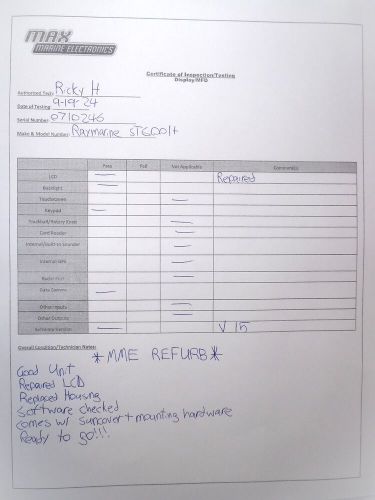 MAX
MARINE ELECTRONICS
Certificate of Inspection/Testing
Display/MFD
Authorized Tech: Ricky H
Date of Testing 9-19-24
Serial Number: 0710246
Make & Model Number: Raymarine ST6001+
Pass Fail Not Applicable Comment(s)
LCD Repaired
Backlight
Touchscreen
Keypad
Trackball/Rotary Knob
Card Reader
Internal/Built-in Sounder
Internal GPS
Radar Port
Data Comms
Other Inputs
Other Outputs
Software Version V 15
Overall Condition/Technician Notes:
*MME REFURB*
Good Unit
Repaired LCD
Replaced Housing
Software checked
comes w/ suncover + mounting hardware
Ready to go!!!